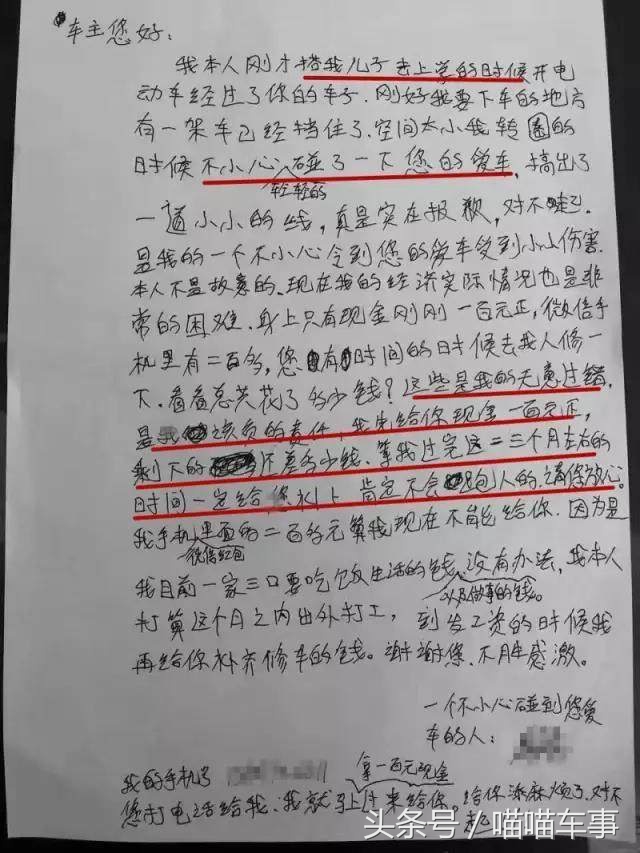 车主您好：
我本人刚才搭我儿子去上学的时候开电
动车经过了你的车子.刚好我要下车的地方
有一架车已经挡住了.空间太小我转圈的
时候不小心碰了一下您的爱车,搞出了
轻轻的
一道小小的线，真是实在报歉，对不
是我的一个不小心令到您的爱车受到小小伤害.
本人不是故意的.现在我的经济实际情况也是非
常的困难.身上只有现金刚刚一百元正,微信手
机里有二百多,您有时间的时候去找人修一
下.看看总共花了多少钱?这些是我的无意过错,
是我该负的责任,我先给你现金一百元正,
剩下的还差多少钱.等我过完这一二三个月左右的
时间一定给您补上 肯定不会人的.请您放心.
我手机里面的二百多元算我现在不能给你.因为是
微信红包
我目前一家三口要吃饭生活的钱.没有办法，我本人
以及做事的钱。
打算这个月之内出外打工，到发工资的时候我
再给你补齐修车的钱。谢谢您.不胜感激。
一个不小心碰到您爱
车的人：
我的手机号
拿一百元现金
您打电话给我.我就马上来给你。给你添麻烦了.对不
起
头条号 / 喵喵车事